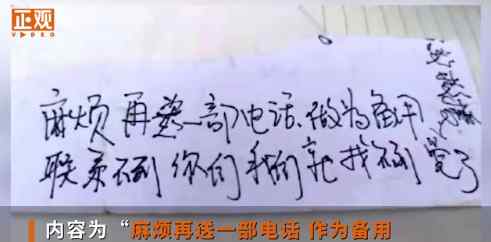 正观
VIDEO
麻烦再送一部电话、做为备用
联系不到你们我们就找不到
内容为“麻烦再送一部电话 作为备用